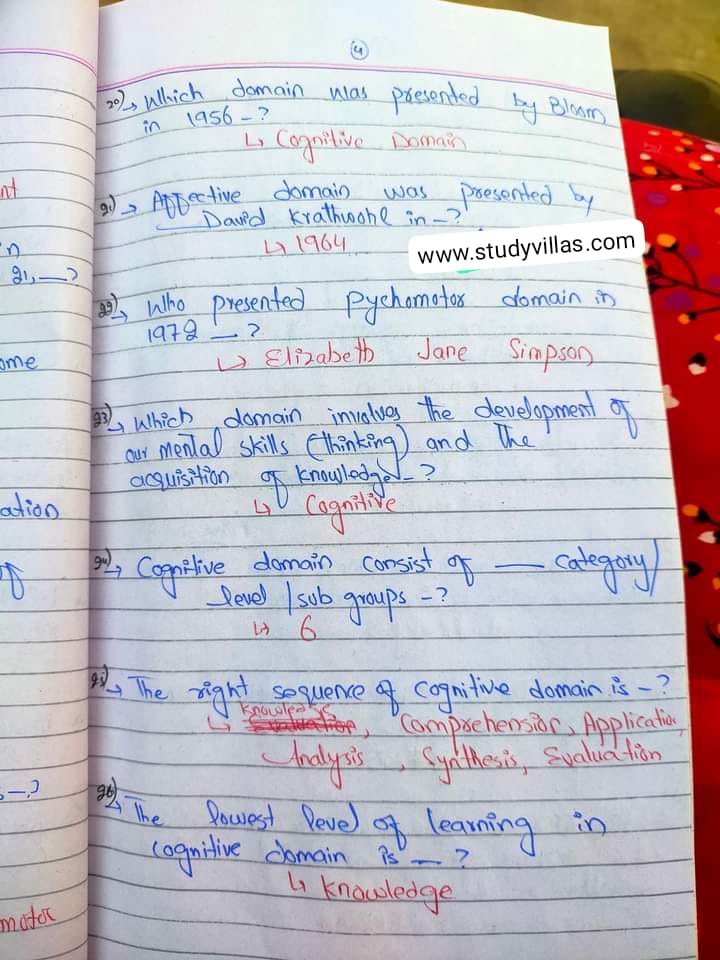 4
20) → Which domain was presented by Bloom
in 1956 - ?
↳ Cognitive Domain
21) → Affective domain was presented by
David Krathwohl in - ?
↳ 1964
www.studyvillas.com
22) → Who presented Pychomotor domain in
1972 - ?
↳ Elizabeth Jane Simpson
23) → Which domain involves the development of
our mental skills (thinking) and the
acquisition of knowledge - ?
↳ Cognitive
24) → Cognitive domain consist of — category/
level / sub groups - ?
↳ 6
25) → The right sequence of cognitive domain is - ?
Knowledge
↳ Evaluation, Comprehension, Application,
Analysis, Synthesis, Evaluation
26) → The lowest level of learning in
cognitive domain is — ?
↳ Knowledge
nt
in
21, — ?
ome
ation
of
s — ?
motor